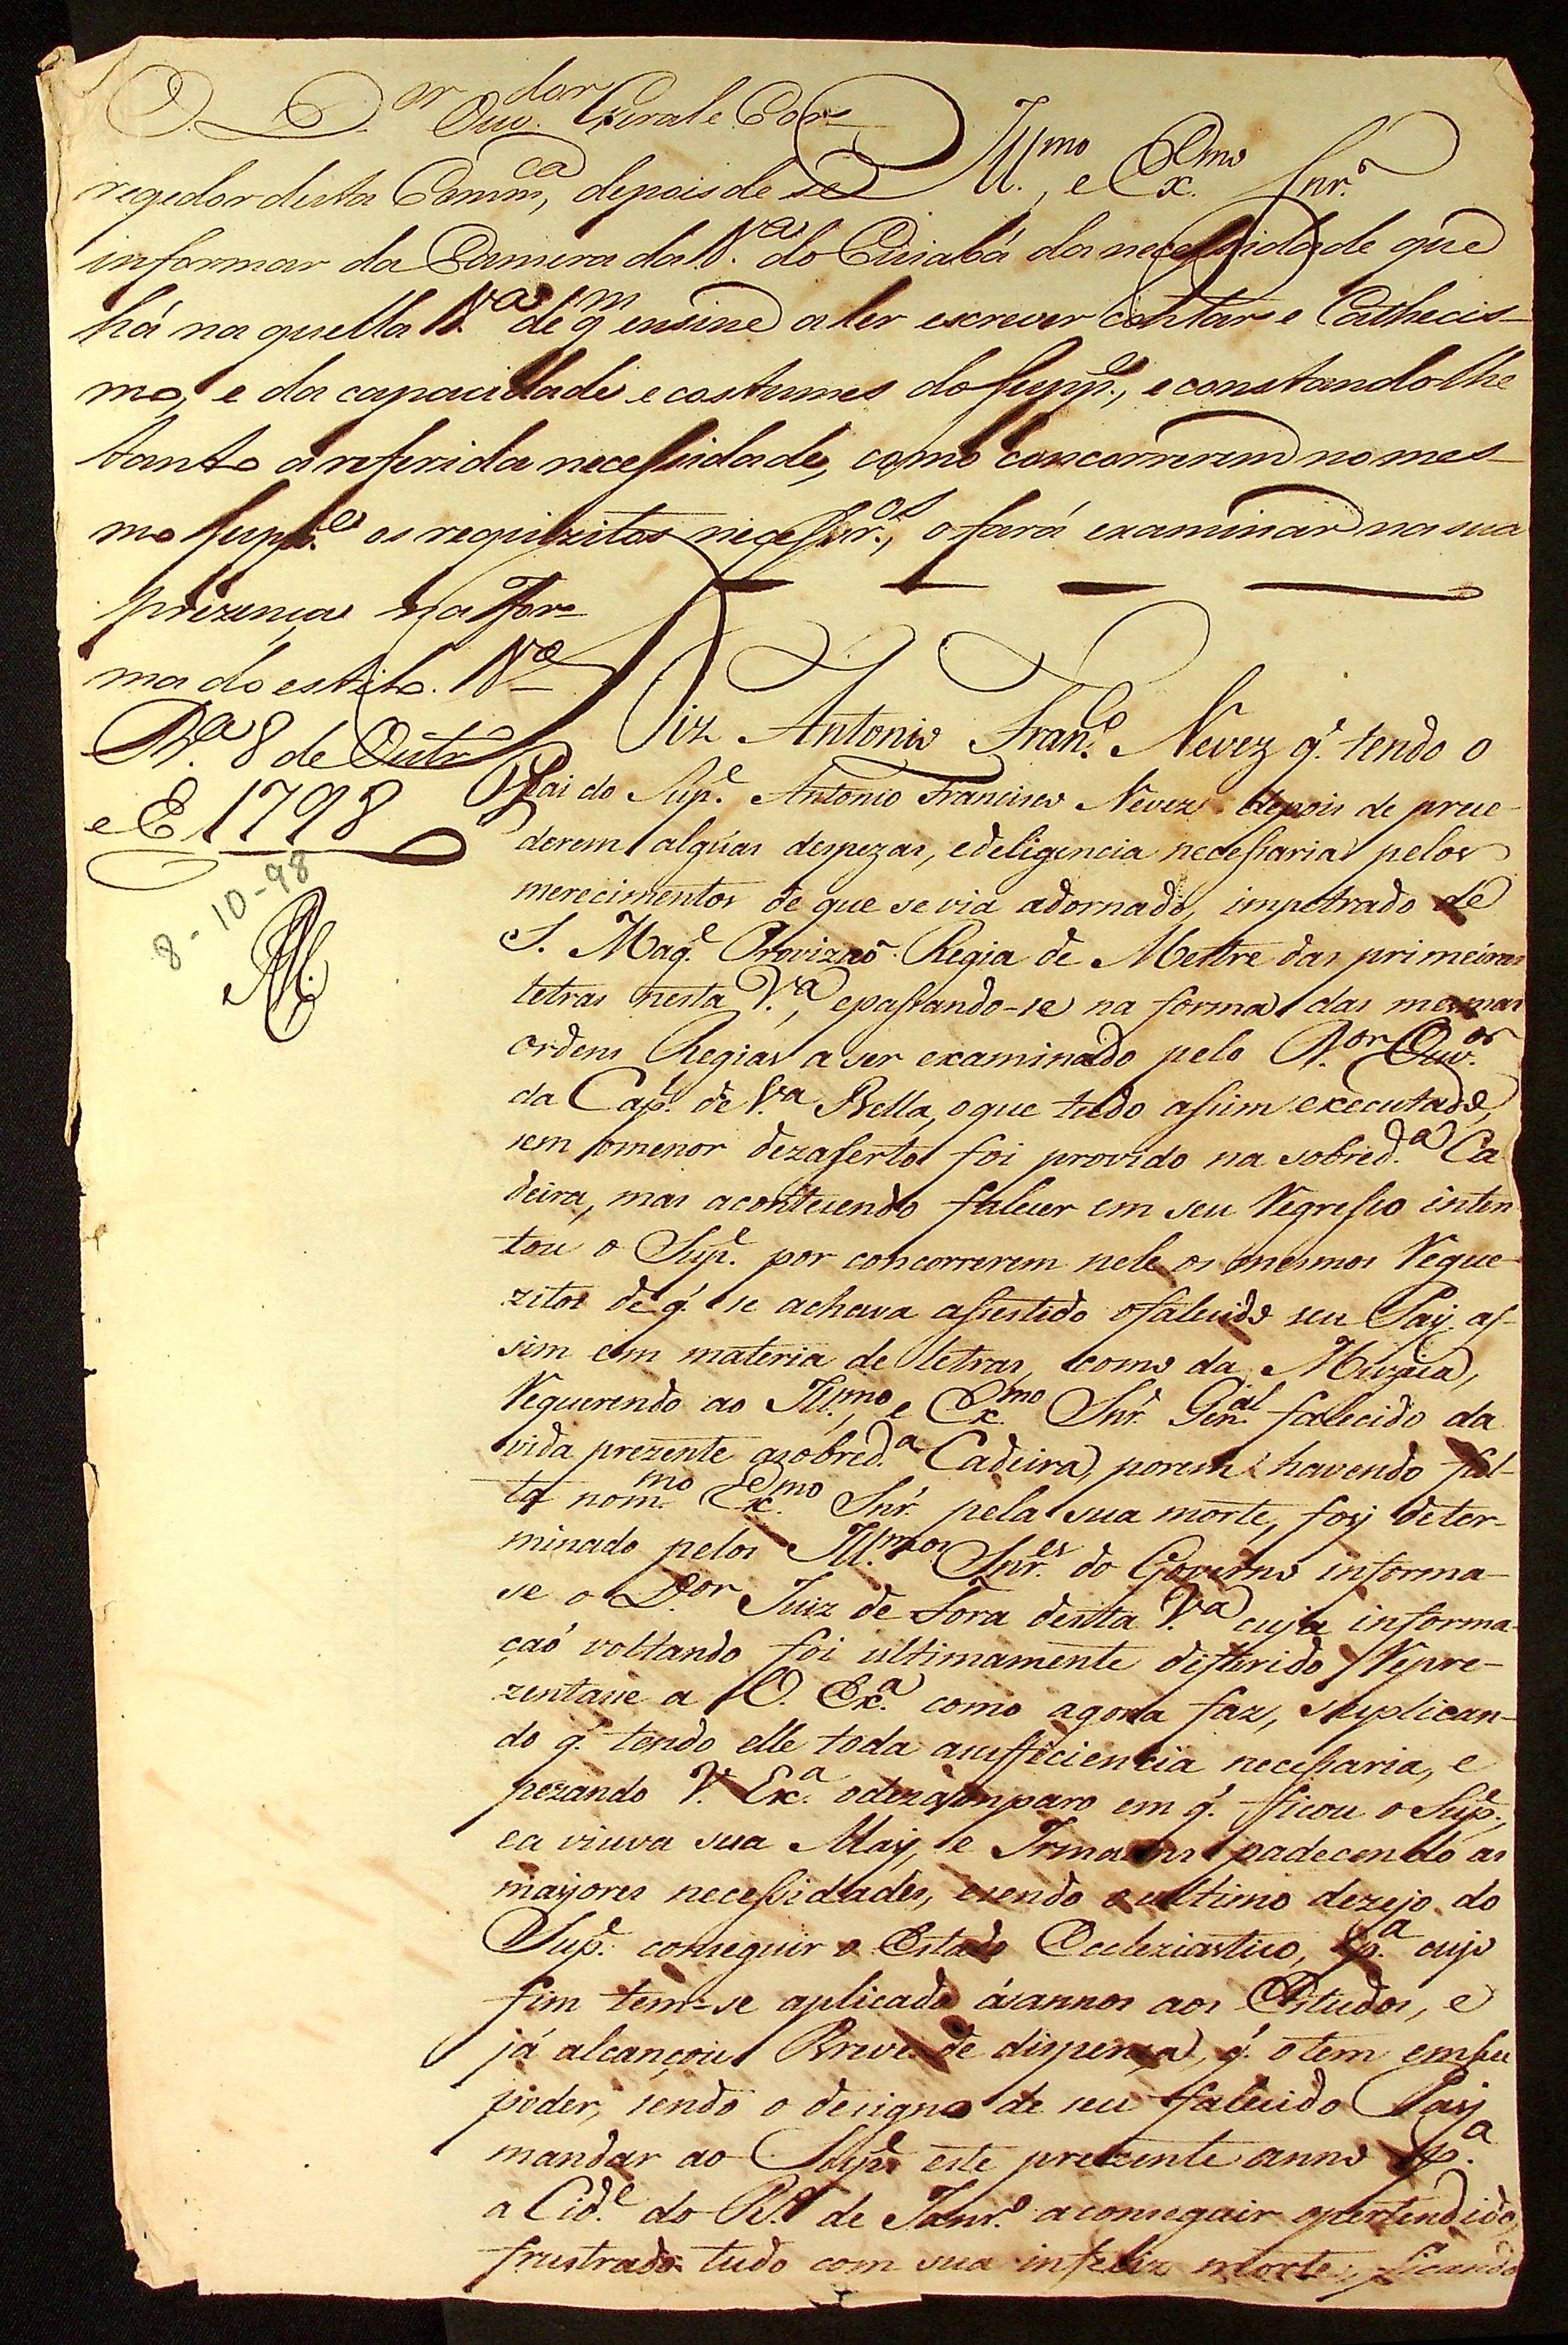 O D.or Ouv.dor Geral e Cor-
regedor desta Comm.ca, depois de se
informar da Camera da V.a do Cuiabá da necessidade que
há na quella V.a de q.m ensine a ler escrever contar e Cathecis-
mo, e da capacidade e costumes do supp.e, e constandolhe
tanto a referida necessidade, como concorrerem no mes-
mo supp.e os requizitos necessr.os, o fará examinar na sua
prezença na for-
ma do estilo. V.a
B.a 8 de Outr.o
e E 1798
8-10-98
Ill.mo, e Ex.mo Snr.
Diz Antonio Fran.co Nevez q. tendo o
Pai do Sup.e Antonio Francisco Nevez depois de prue-
derem algúas despezas, e deligencia necessaria pelos
merecimentos de que se via adornado, impetrado de
S. Mag.e Provizaõ Regia de Mestre das primeiras
letras nesta V.a, e passando-se na forma das mesmas
ordens Regias a ser examinado pelo D.or Ouv.or
da Cap. de V.a Bella, o que tudo assim executado,
sem o menor dezaserto foi provido na sobred.a Ca
deira, mas acontecendo falecer em seu Regresso inten
tou o Sup.e por concorrerem nele os mesmos Reque-
zitos de q. se achava assestido o falecido seu Pay as-
sim em materia de letras, como da Muzica,
Requerendo ao Ill.mo e Ex.mo Snr. Gen.al falecido da
vida prezente a sobred.a Cadeira, porem havendo fal-
ta no m.mo Ex.mo Snr. pela sua morte, foy deter-
minado pelos Ill.mos Snr.es do Governo informa-
se o D.or Juiz de Fora desta V.a cuja informa-
çaõ voltando foi ultimamente deferido Repre-
zentase a V. Ex.a como agora faz, suplican-
do q. tendo elle toda a sufficiencia necessaria, e
pezando V. Ex.a o dezamparo em q. ficou o Sup.e,
e a viuva sua May, e Irmaons padecendo as
mayores necessidades, e sendo o ultimo dezejo do
Sup.e conseguir o Estado Ecleziastico, p.a cujo
fim tem-se aplicado ás annos aos Estudos, e
já alcançou Breve de dispensa, q. o tem em seu
poder, sendo o designo de seu falecido Pay
mandar ao Sup.e este prezente anno p.a
a Cid.e do R.o de Janr.o a conseguir o pertendido,
frustrado tudo com sua infeliz morte, ficando